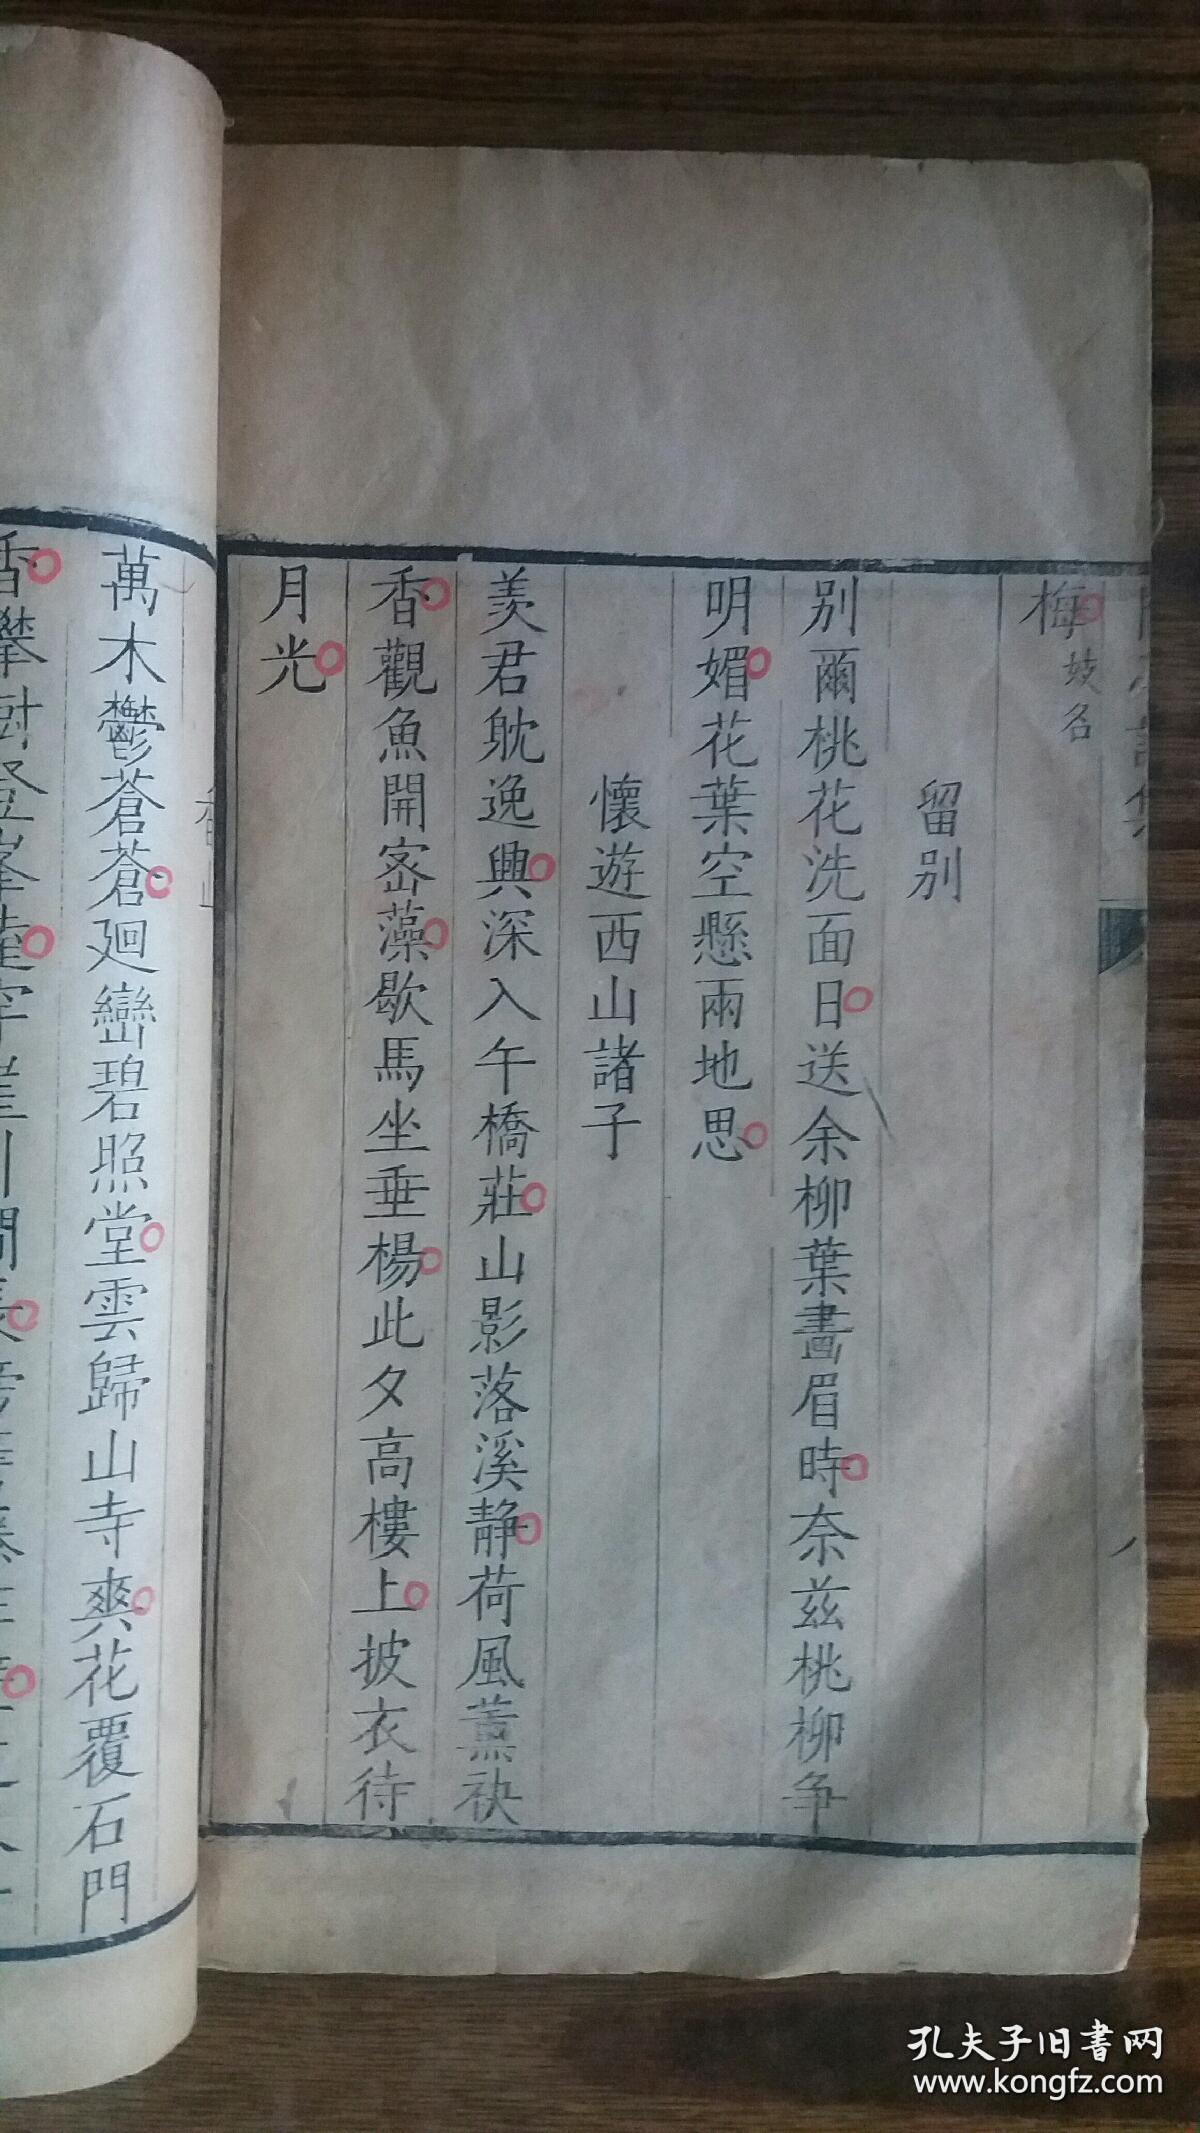 梅妓名
留别
别爾桃花洗面日送余柳葉畫眉時奈兹桃柳争
明媚花葉空懸兩地思
懷遊西山諸子
羨君躭逸興深入午橋莊山影落溪静荷風薰袂
香觀魚開宻藻歇馬坐垂楊此夕高樓上披衣待
月光
萬木鬱蒼蒼廻巒碧照堂雲歸山寺爽花覆石門
孔夫子旧书网
www.kongfz.com